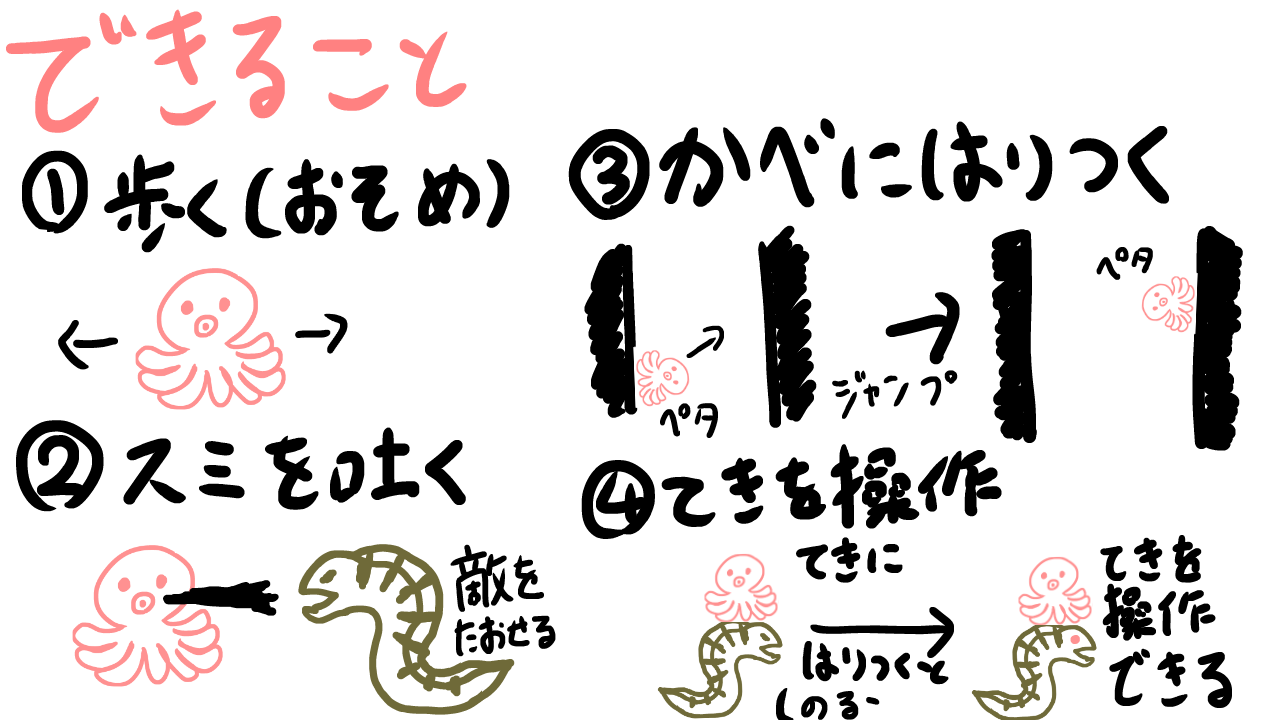 できること
①歩く(おそめ)
②スミを吐く
敵を
たおせる
③かべにはりつく
ペタ
ジャンプ
ペタ
④てきを操作
てきに
はりつくと
てきを
操作
できる